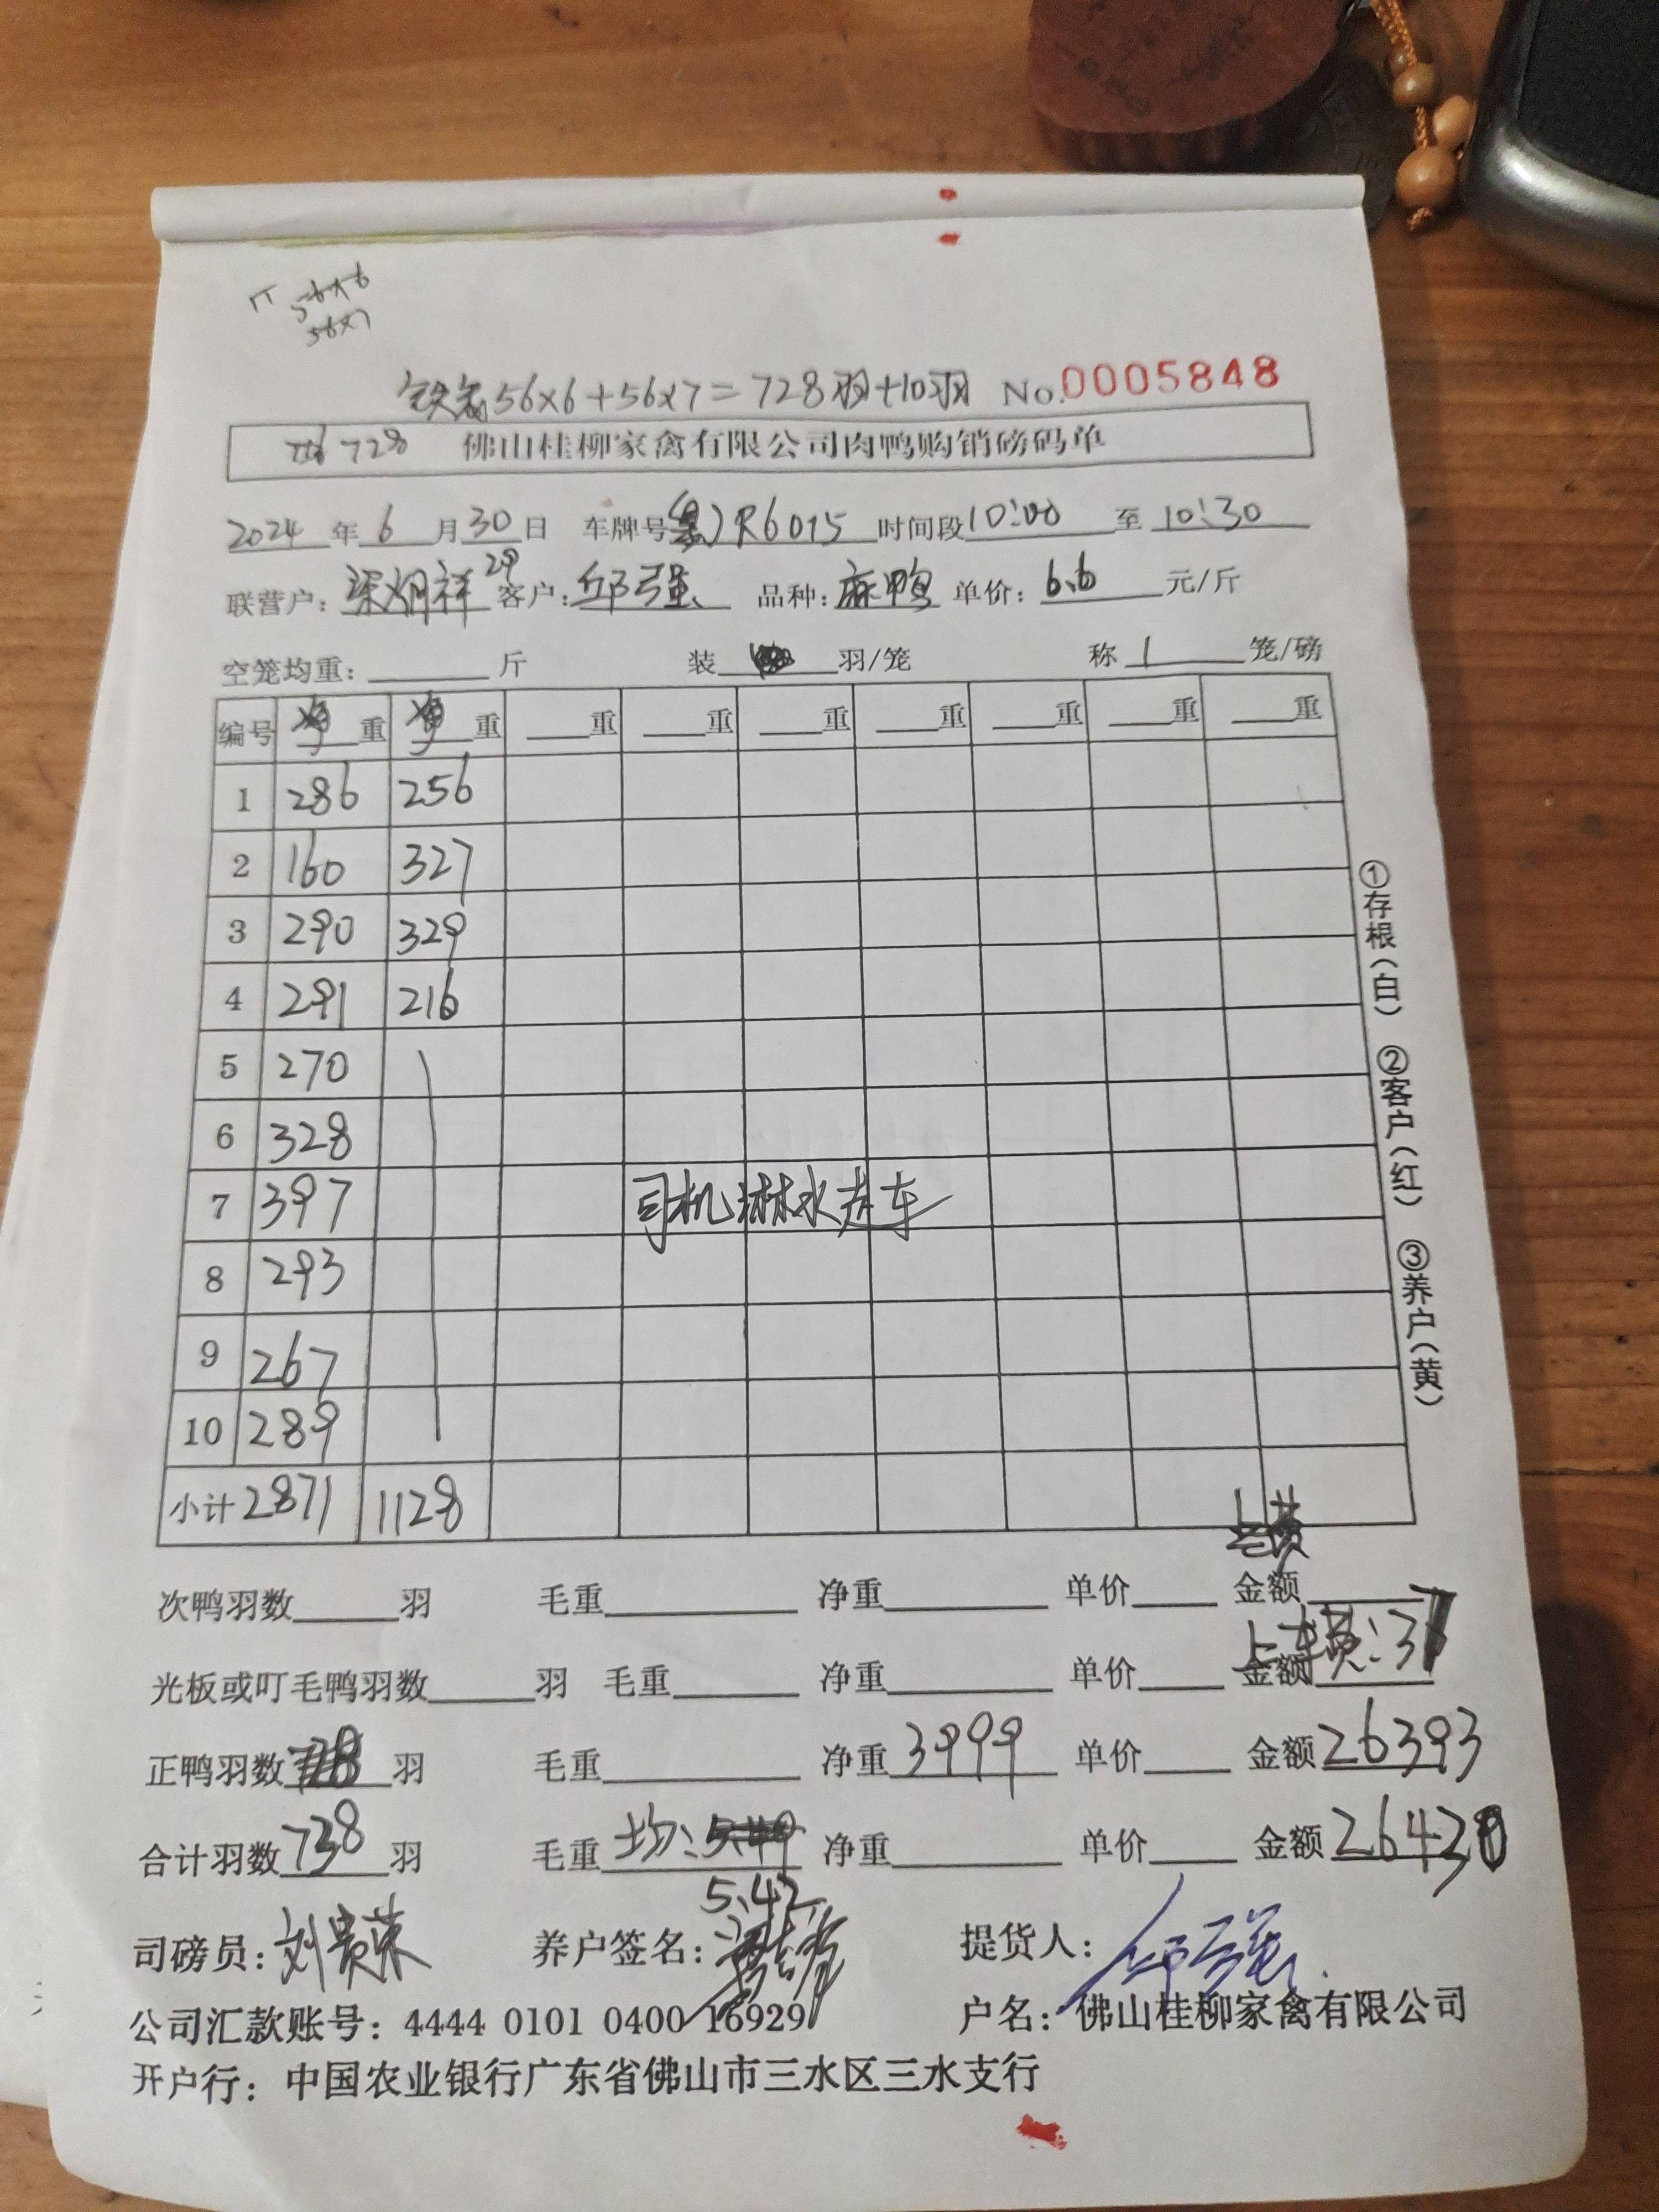 56×6
56×7
56×6+56×7=728羽+10羽 No.0005848
728 佛山桂柳家禽有限公司肉鸭购销磅码单
2024年6月30日 车牌号R6015 时间段10:00至10:30
29
联营户: 客户:邱强 品种:麻鸭 单价:6.6元/斤
空笼均重:斤 装羽/笼 称1笼/磅
编号 净重 净重 重 重 重 重 重 重 重
1 286 256
2 160 327
3 290 329
4 291 216
5 270
6 328
7 397 司机淋水赶车
8 293
9 267
10 289
小计 2871 1128
①存根(白) ②客户(红) ③养户(黄)
次鸭羽数羽 毛重 净重 单价 金额
上车费:37
光板或叮毛鸭羽数羽 毛重 净重 单价 金额
正鸭羽数羽 毛重 净重3999 单价 金额26393
合计羽数738羽 毛重均: 净重 单价 金额26430
5.42
司磅员:刘贵荣 养户签名: 提货人:邱强
公司汇款账号:4444 0101 0400 16929 户名:佛山桂柳家禽有限公司
开户行:中国农业银行广东省佛山市三水区三水支行